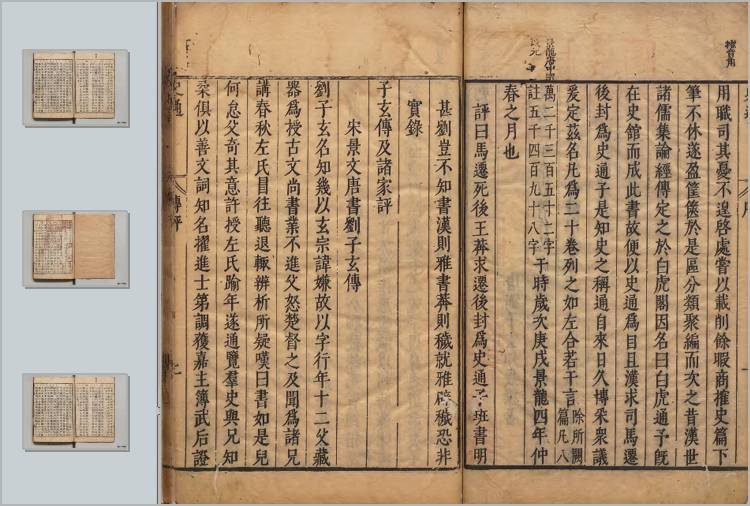 用職司其憂不遑啓處嘗以載削餘暇商搉史篇下
筆不休遂盈筐篋於是區分類聚編而次之昔漢世
諸儒集論經傳定之於白虎閣因名曰白虎通予旣
在史館而成此書故便以史通爲目且漢求司馬遷
後封爲史通子是知史之稱通自來日久博采衆議
爰定茲名凡爲二十卷列之如左合若干言除所闕篇凡八
萬二千三百五十二字註五千四百九十八字于時歲次庚戌景龍四年仲
春之月也
評曰馬遷死後王莽求遷後封爲史通子班書明
甚劉豈不知書漢則雅書莽則穢就雅辟穢恐非
實錄
子玄傳及諸家評
宋景文唐書劉子玄傳
劉子玄名知幾以玄宗諱嫌故以字行年十二父藏
器爲授古文尚書業不進父怒楚督之及聞爲諸兄
講春秋左氏冒往聽退輒辨析所疑嘆曰書如是兒
何怠父奇其意許授左氏踰年遂通覽羣史與兄知
柔俱以善文詞知名擢進士第調獲嘉主簿武后證
史通
傳評